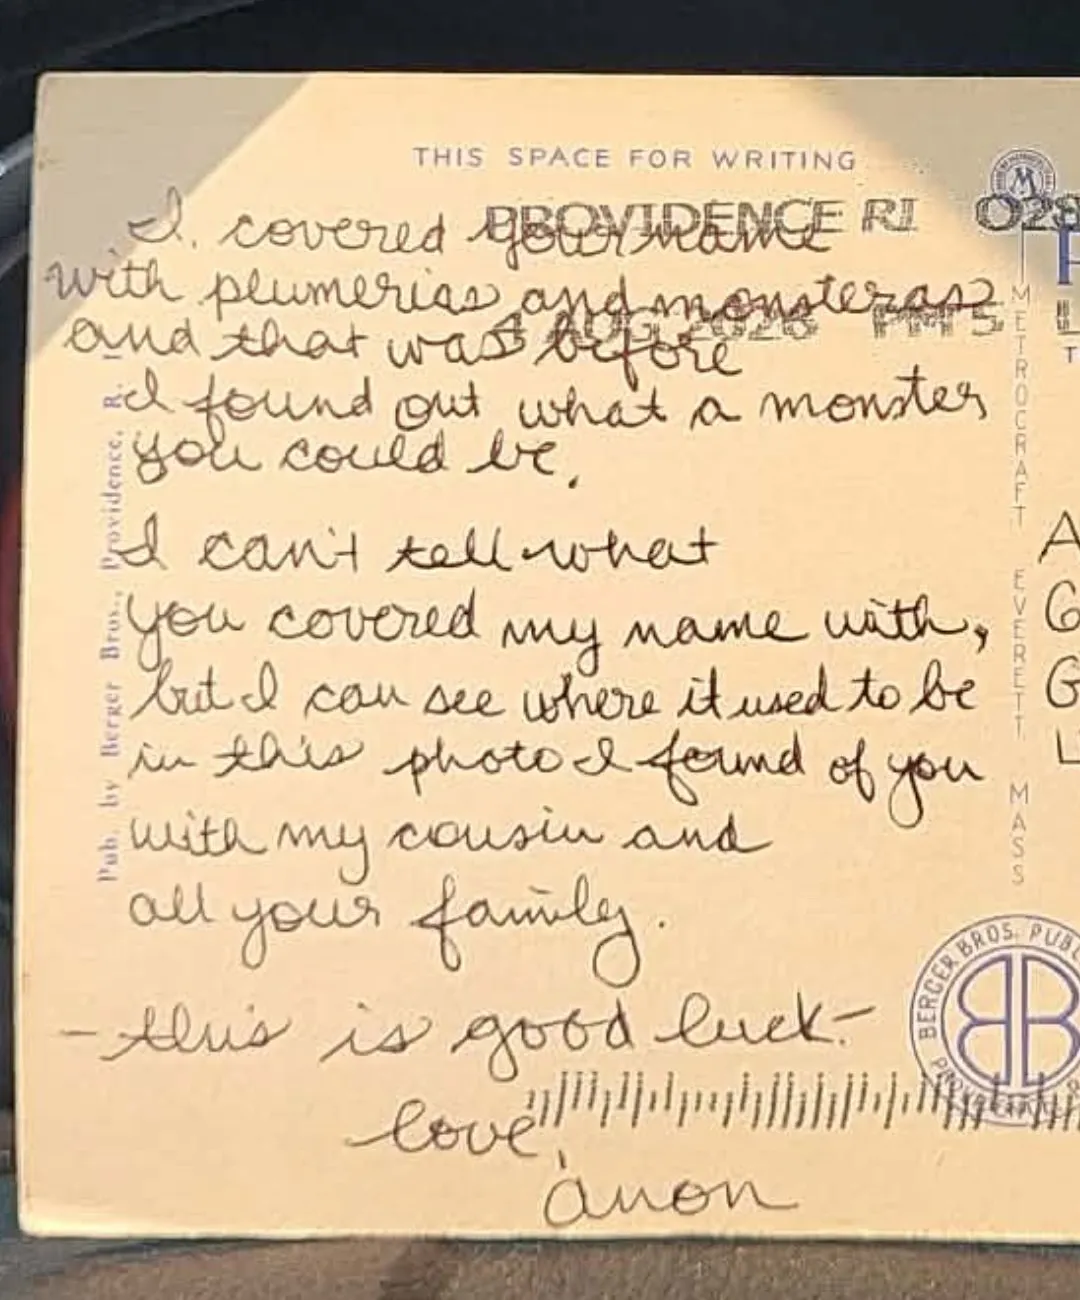 THIS SPACE FOR WRITING
PROVIDENCE RI 028
4 AUG 2026 PM 5 L
I covered your name
with plumerias and monsteras
and that was before
I found out what a monster
you could be.
I can't tell what
you covered my name with,
but I can see where it used to be
in this photo I found of you
with my cousin and
all your family.
- this is good luck -
love,
anon
Pub. by Berger Bros., Providence, R. I.
METROCRAFT EVERETT MASS
M
BERGER BROS. PUBL
BB
A
G
G
L